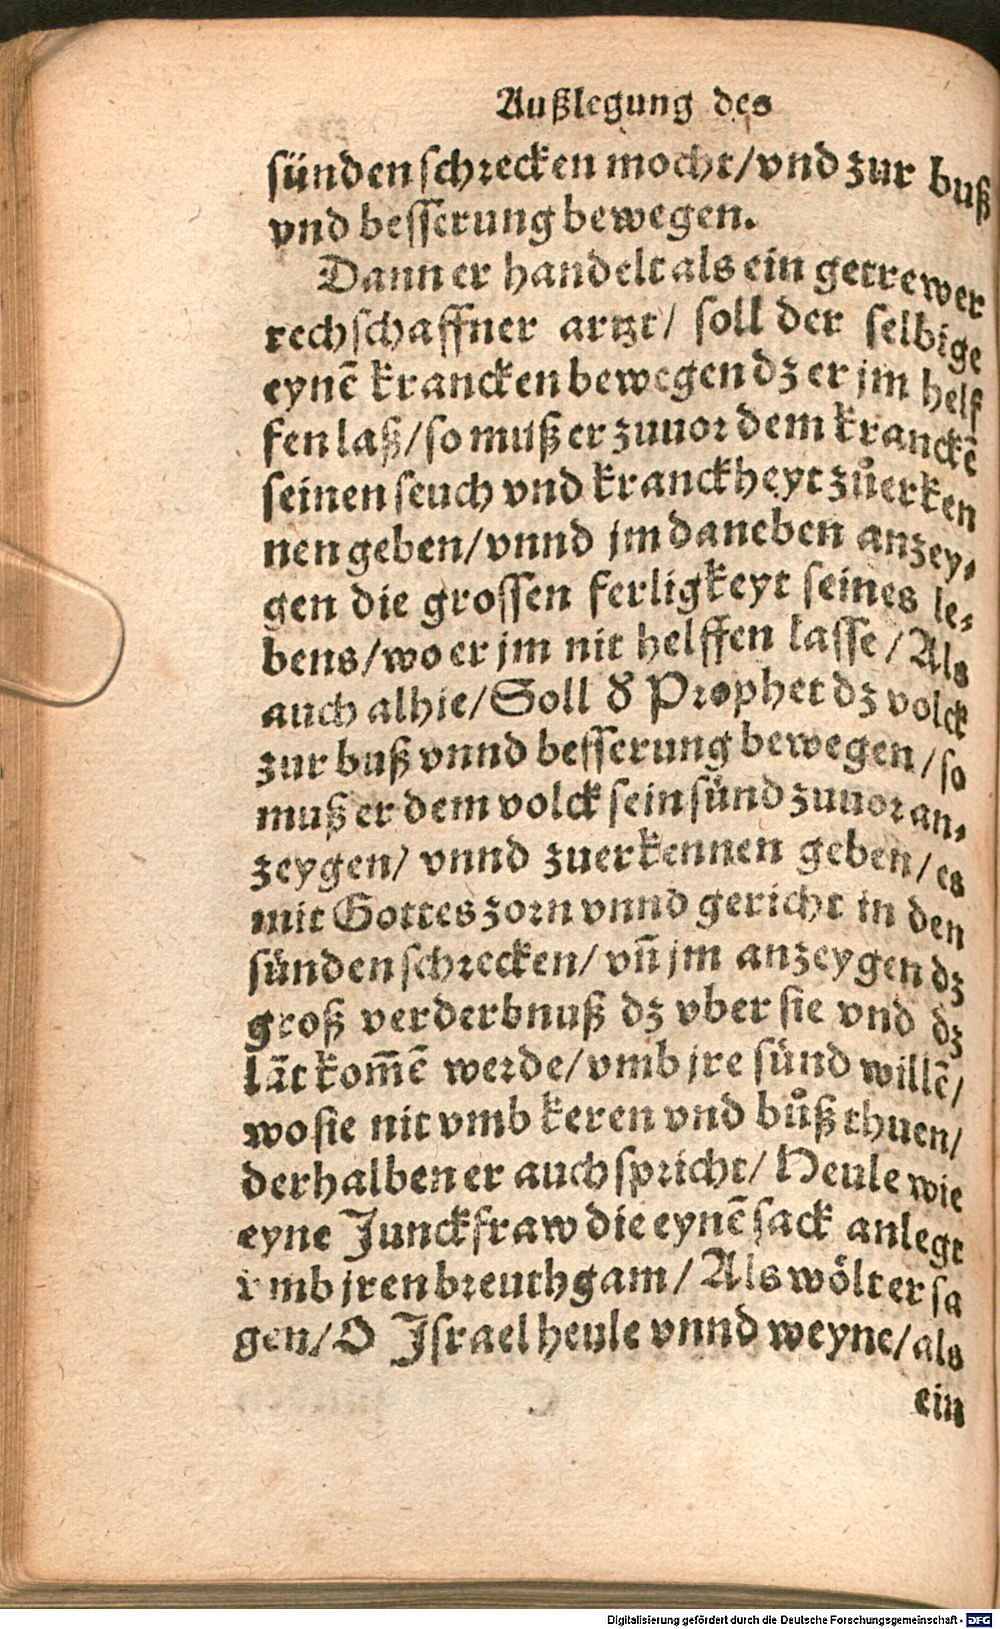 Außlegung des
sünden schrecken mocht/vnd zur buß
vnd besserung bewegen.
Dann er handelt als ein getrewer
rechschaffner artzt/ soll der selbige
eynē krancken bewegen dz er jm helf
fen laß/so muß er zuuor dem kranckē
seinen seuch vnd kranckheyt zůerken
nen geben/vnnd jm daneben anzey⸗
gen die grossen ferligkeyt seines le⸗
bens/wo er jm nit helffen lasse/Als
auch alhie/Soll d̕ Prophet dz volck
zur buß vnnd besserung bewegen/so
muß er dem volck sein sünd zuuor an⸗
zeygen/ vnnd zuerkennen geben/es
mit Gottes zorn vnnd gericht in den
sünden schrecken/ vñ jm anzeygen dz
groß verderbnuß dz vber sie vnd dz
lāt kom̄ē werde/vmb jre sünd willē/
wo sie nit vmb keren vnd bůß thuen/
derhalben er auch spricht/ Heule wie
eyne Junckfraw die eynē sack anlegt
vmb jren breuthgam/Als wölt er sa
gen/O Israel heule vnnd weyne/als
ein
Digitalisierung gefördert durch die Deutsche Forschungsgemeinschaft - DFG